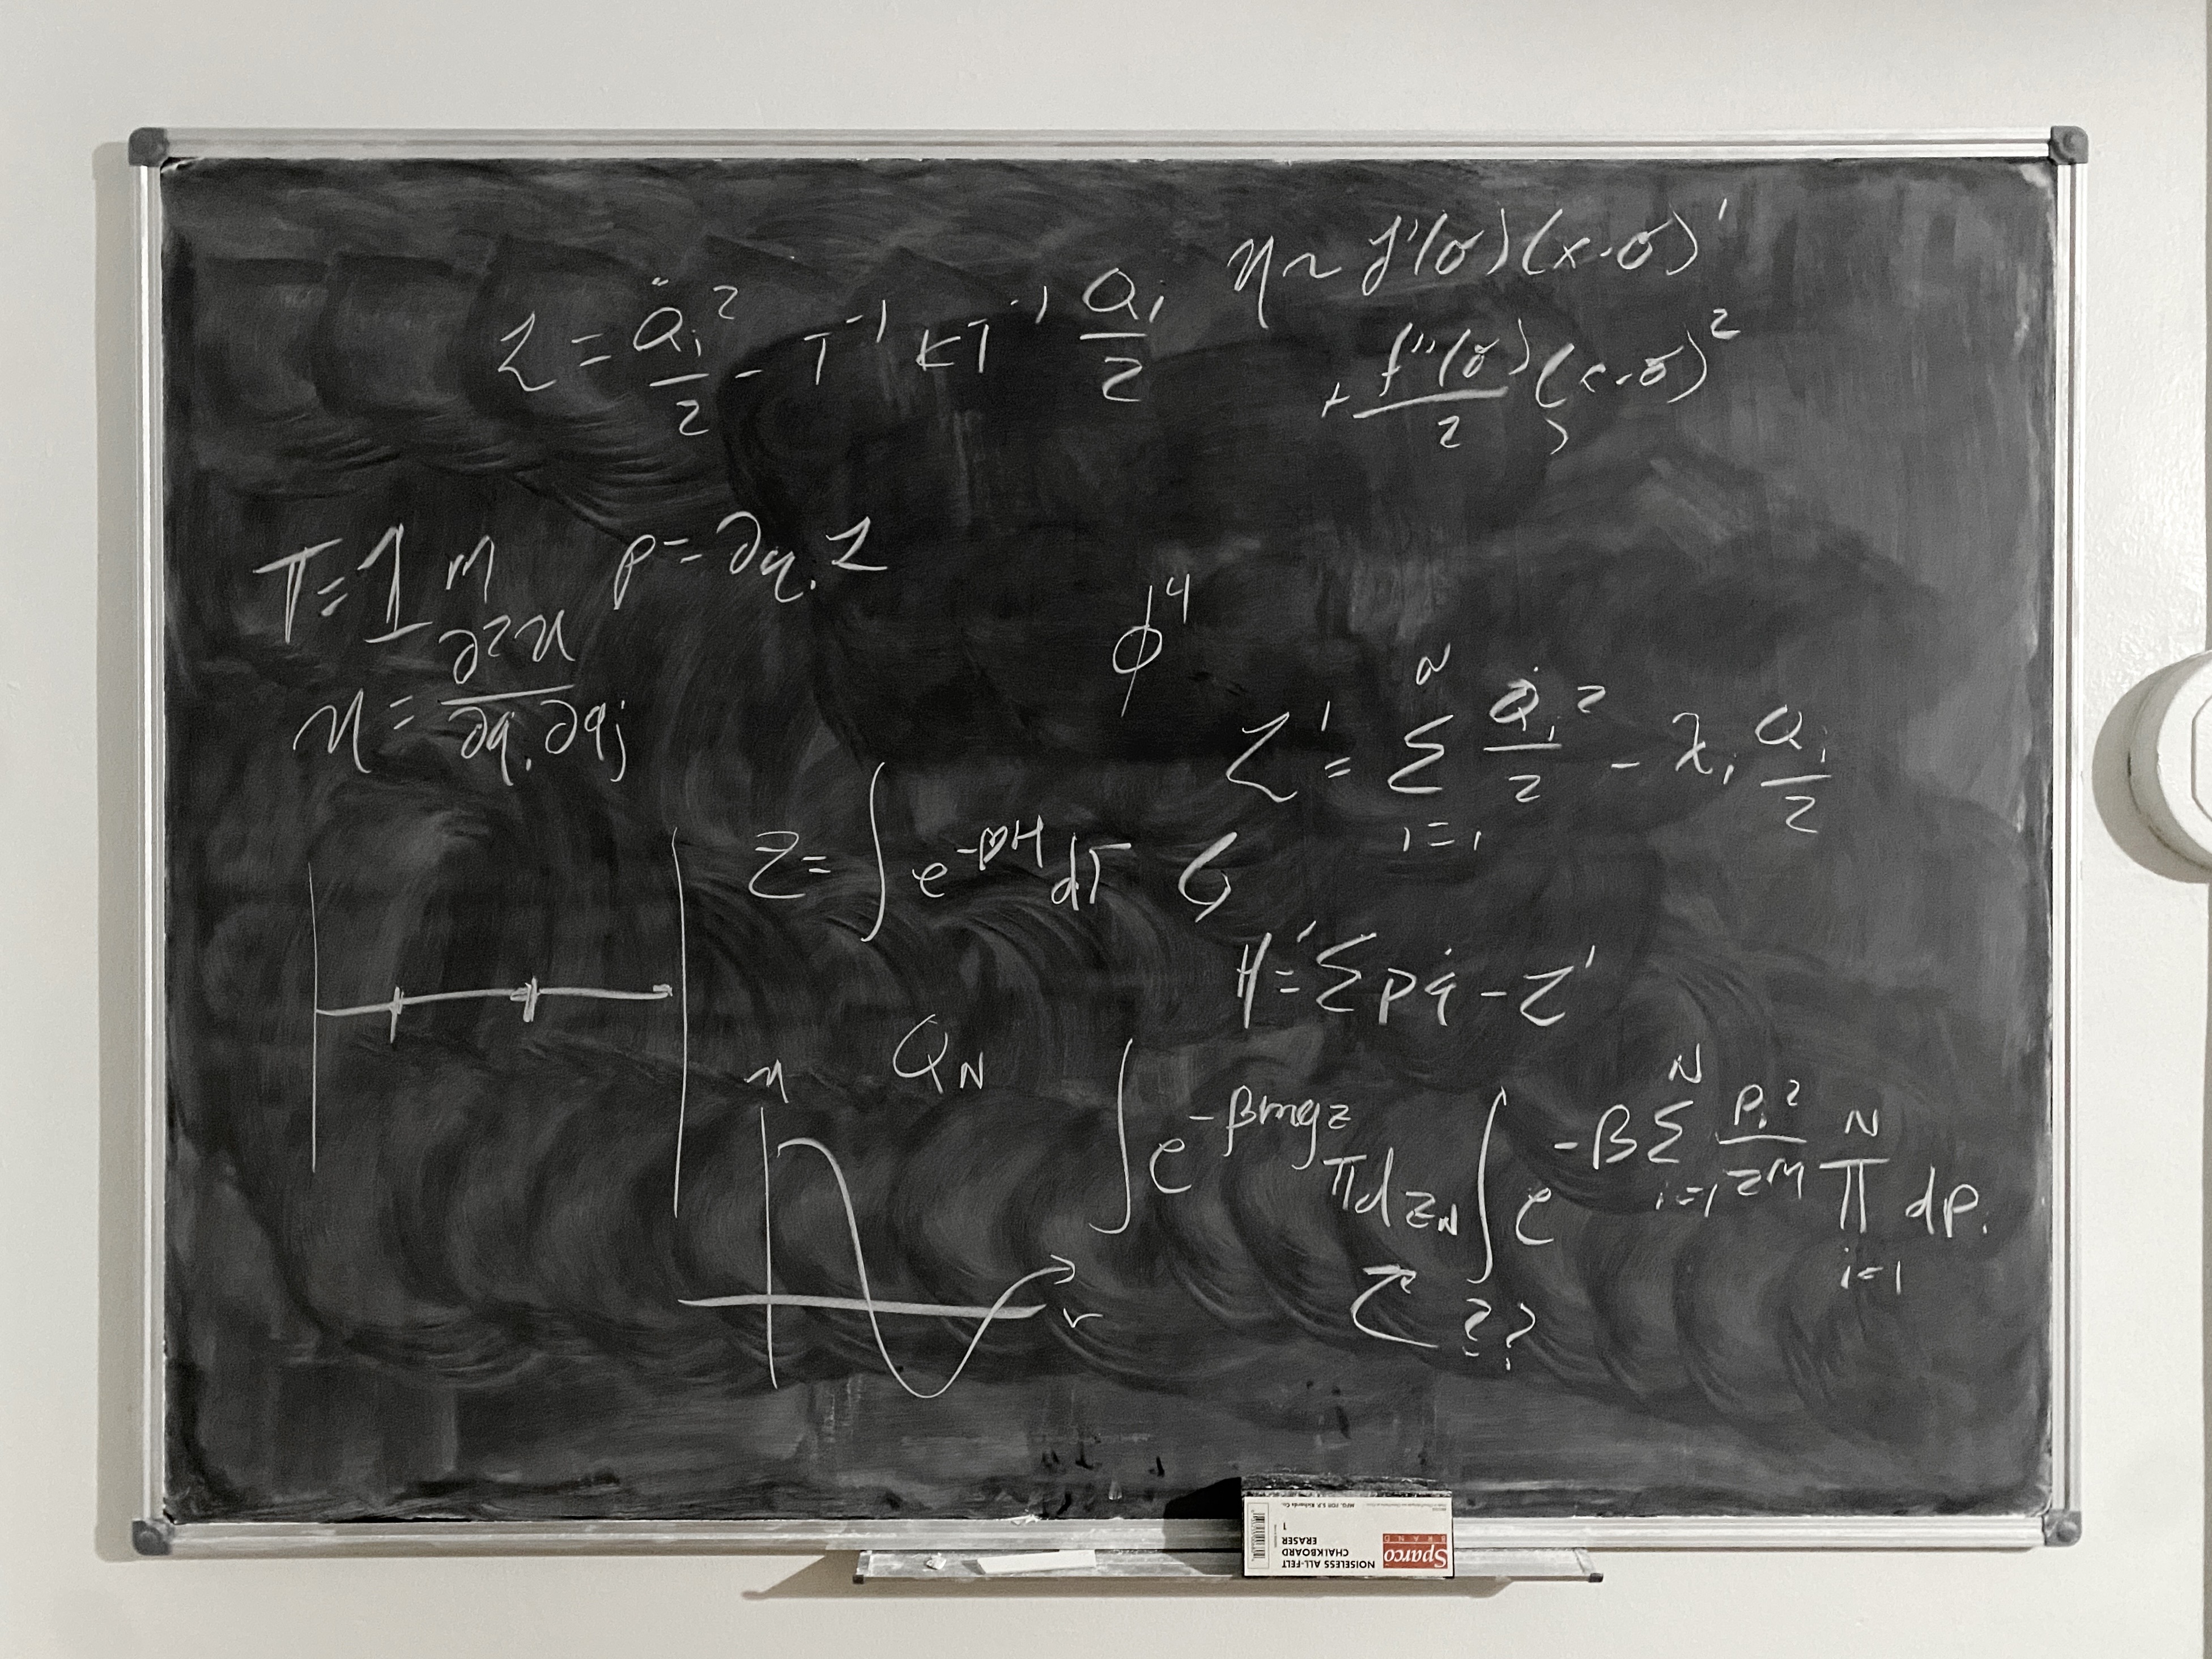 η ~ f'(σ)(x-σ)'
L = Q̇ᵢ²/2 - T⁻¹ K T⁻¹ Qᵢ/2
+ f''(σ)/2 (x-σ)²
T = 1/2 M
p = ∂q̇ᵢ L
ϕ⁴
u = ∂²u/∂qᵢ∂qⱼ
L' = Σᵢ₌₁ᴺ Q̇ᵢ²/2 - λᵢ Qᵢ/2
Z = ∫ e^-βH dΓ
H' = Σ p q̇ - L'
Q_N
u
∫ e^-βmgz π dz_N ∫ e^-β Σᵢ₌₁ᴺ pᵢ²/2M Πᵢ₌₁ᴺ dpᵢ
r
??
Sparco
BRAND
NOISELESS ALL-FELT
CHALKBOARD
ERASER
1
MFG. FOR S.P. Richards Co.